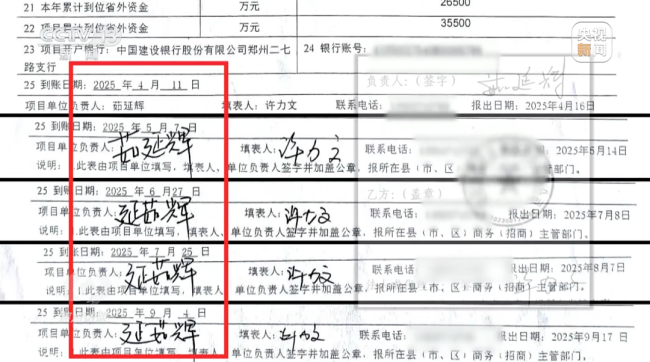 CCTV 13
央视新闻
21 本年累计到位省外资金 万元 26500
22 项目累计到位省外资金 万元 35500
23 项目开户银行：中国建设银行股份有限公司郑州二七路支行 24 银行账号：
负责人：（签字） 茹延辉
25 到账日期：2025 年 4 月 11 日
项目单位负责人：茹延辉 填表人：许力文 联系电话： 报出日期：2025年4月16日
25 到账日期：2025 年 5 月 7 日
项目单位负责人： 茹延辉 填表人： 许力文 联系电话： 2025年5月14日
说明：1.此表由项目单位填写，填表人、单位负责人签字并加盖公章，报所在县（市、区）商务（招商）主管部门。
25 到账日期：2025 年 6 月 27 日
乙方：（盖章）
项目单位负责人： 延茹辉 填表人： 联系电话： 报出日期：2025年7月8日
说明：1.此表由项目单位填写，填表人、单位负责人签字并加盖公章，报所在县（市、区）商务（招商）主管部门。
25 到账日期：2025 年 7 月 25 日
项目单位负责人： 延茹辉 填表人： 联系电话 报出日期：2025年8月7日
说明：1.此表由项目单位填写，填表人、单位负责人签字并加盖公章，报所在县（市、区）商务（招商）主管部门。
25 到账日期：2025 年 9 月 4 日
项目单位负责人： 延茹辉 填表人： 联系电话： 报出日期：2025年9月17日
说明：1.此表由项目单位填写，填表人、单位负责人签字并加盖公章，报所在县（市、区）商务（招商）主管部门。